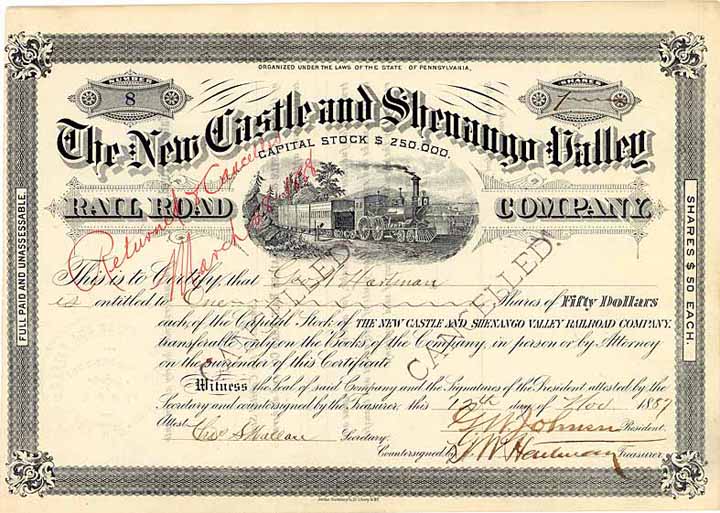 ORGANIZED UNDER THE LAWS OF THE STATE OF PENNSYLVANIA,
NUMBER
8
SHARES
The New Castle and Shenango Valley
CAPITAL STOCK $ 250,000.
RAIL ROAD COMPANY.
Returned & Cancelled
March 1888
FULL PAID AND UNASSESSABLE.
SHARES $ 50 EACH.
This is to Certify, that Geo W Hartman
is entitled to One Shares of Fifty Dollars
each, of the Capital Stock of THE NEW CASTLE AND SHENANGO VALLEY RAILROAD COMPANY.
transferable only on the Books of the Company, in person or by Attorney
on the surrender of this Certificate
CANCELLED.
CANCELLED.
Witness the Seal of said Company and the Signatures of the President, attested by the
Secretary and countersigned by the Treasurer, this 12th day of Nov 1887
Attest. Secretary. G W Johnson President.
Countersigned by G. W. Hartman Treasurer.